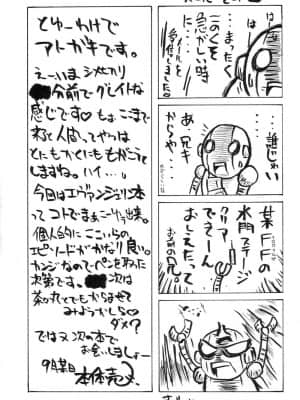 まったく
この
急がしい時
に…
メールを
受信しました。
誰じゃい
あ、兄キ
からや…
某FFの
水門ステージ
クリアー
できまへーん
おしえたって
お前の兄。
とゆーわけで
アトガキです。
えーいま シメキリ
分前で グレイトな
感じです♡もぉここまで
来ると人間ってやつは
とにもかくにももがこうと
しますね。ハイ…。
今回はエヴァンジェリン本
ってコトでまぁこーゆう出来。
個人的にここいらの
エピソードがかなり良い。
カンジなのでペンを取った
次第です。次は
茶々丸とでもからませて
みようかしら♡
ダメ?
では又次の本で
お会いしましょー
9月某日